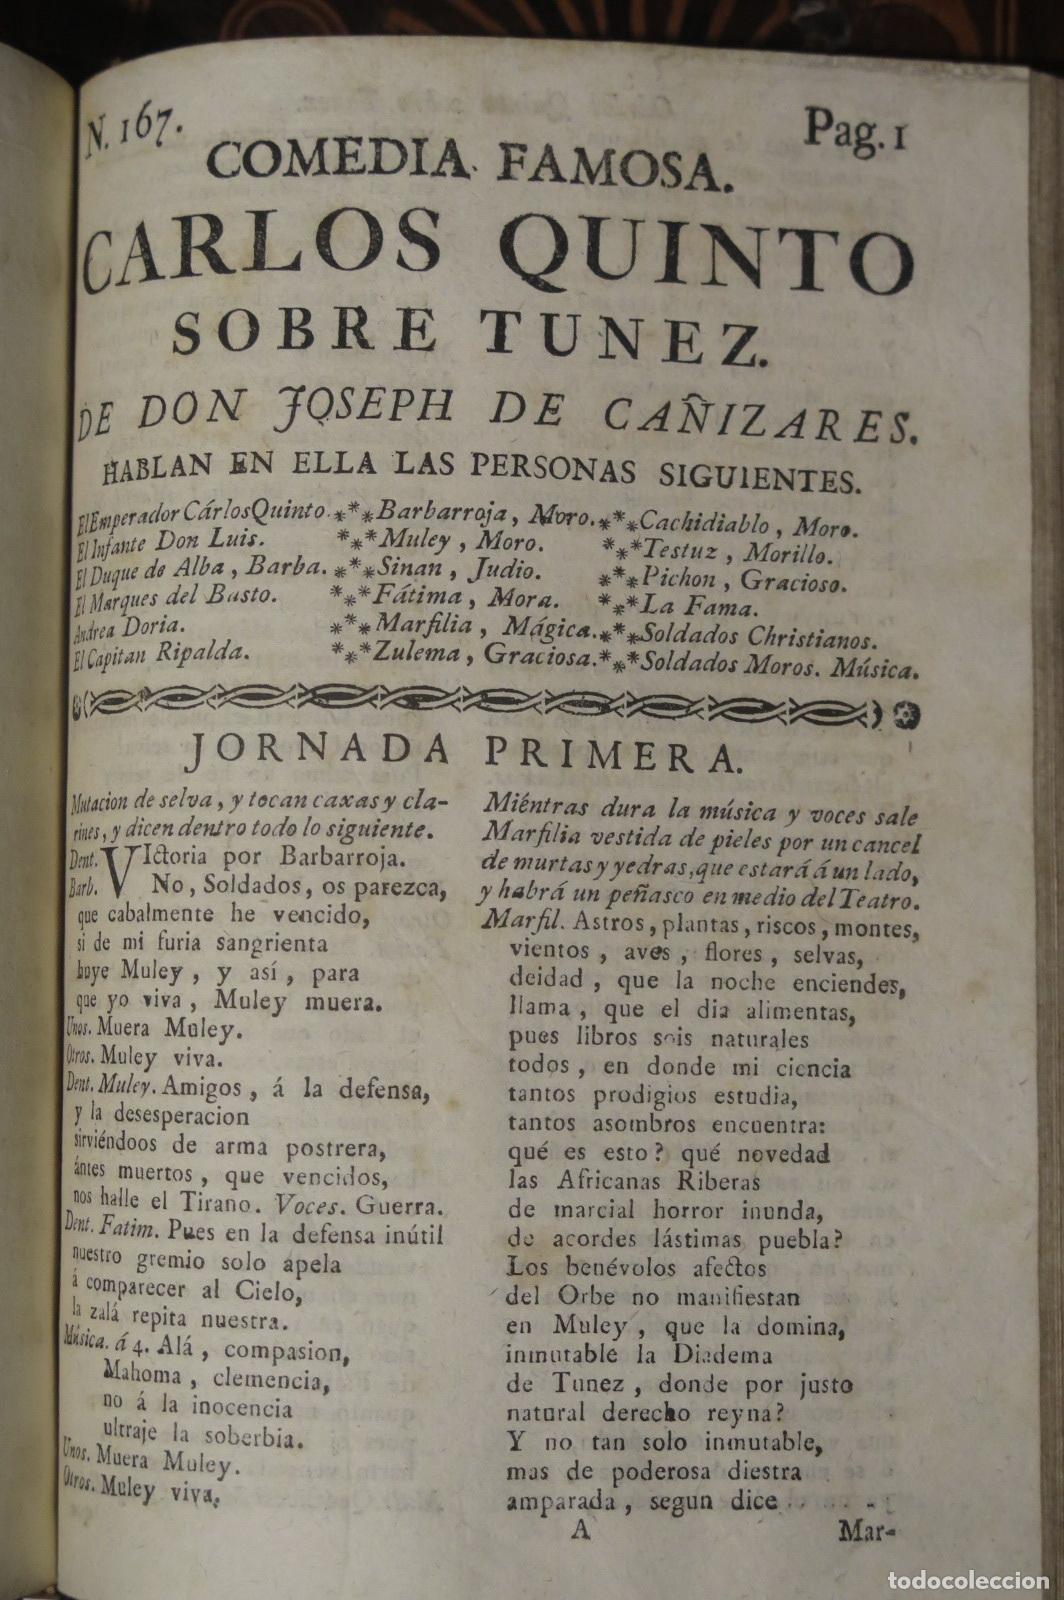 N. 167.
Pag. 1
COMEDIA FAMOSA.
CARLOS QUINTO
SOBRE TUNEZ.
DE DON JOSEPH DE CAÑIZARES.
HABLAN EN ELLA LAS PERSONAS SIGUIENTES.
El Emperador Cárlos Quinto. *** Barbarroja, Moro. *** Cachidiablo, Moro.
El Infante Don Luis. *** Muley, Moro. *** Testuz, Morillo.
El Duque de Alba, Barba. *** Sinan, Judio. *** Pichon, Gracioso.
El Marques del Basto. *** Fátima, Mora. *** La Fama.
Andrea Doria. *** Marfilia, Mágica. *** Soldados Christianos.
El Capitan Ripalda. *** Zulema, Graciosa. *** Soldados Moros. Música.
JORNADA PRIMERA.
Mutacion de selva, y tocan caxas y cla-
rines, y dicen dentro todo lo siguiente.
Dent. VIctoria por Barbarroja.
Barb. No, Soldados, os parezca,
que cabalmente he vencido,
si de mi furia sangrienta
huye Muley, y así, para
que yo viva, Muley muera.
Unos. Muera Muley.
Otros. Muley viva.
Dent. Muley. Amigos, á la defensa,
y la desesperacion
sirviéndoos de arma postrera,
ántes muertos, que vencidos,
nos halle el Tirano. Voces. Guerra.
Dent. Fatim. Pues en la defensa inútil
nuestro gremio solo apela
á comparecer al Cielo,
la zalá repita nuestra.
Música. á 4. Alá, compasion,
Mahoma, clemencia,
no á la inocencia
ultraje la soberbia.
Unos. Muera Muley.
Otros. Muley viva.
Miéntras dura la música y voces sale
Marfilia vestida de pieles por un cancel
de murtas y yedras, que estará á un lado,
y habrá un peñasco en medio del Teatro.
Marfil. Astros, plantas, riscos, montes,
vientos, aves, flores, selvas,
deidad, que la noche enciendes,
llama, que el dia alimentas,
pues libros sois naturales
todos, en donde mi ciencia
tantos prodigios estudia,
tantos asombros encuentra:
qué es esto? qué novedad
las Africanas Riberas
de marcial horror inunda,
de acordes lástimas puebla?
Los benévolos afectos
del Orbe no manifiestan
en Muley, que la domina,
inmutable la Diadema
de Tunez, donde por justo
natural derecho reyna?
Y no tan solo inmutable,
mas de poderosa diestra
amparada, segun dice
A
Mar-
todocoleccion